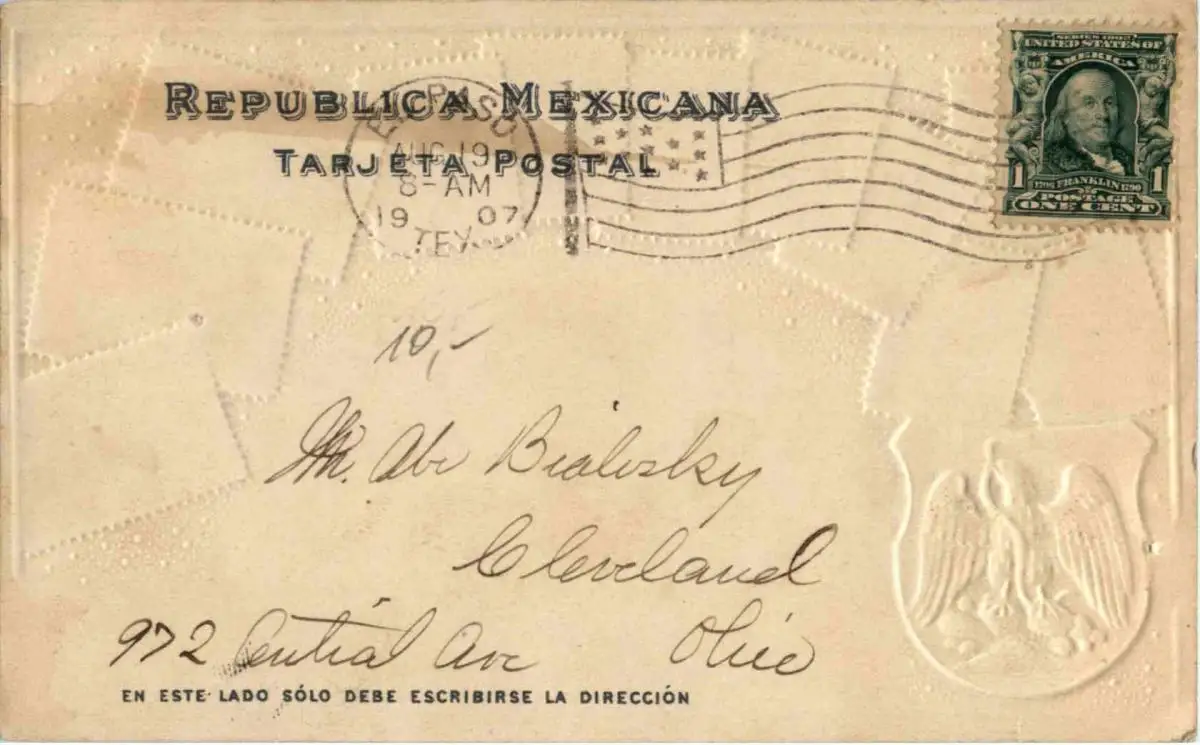 SERIES 1902
UNITED STATES OF
AMERICA
REPUBLICA MEXICANA
TARJETA POSTAL
EL PASO
AUG 19
8-AM
19 07
TEX.
1 1706 FRANKLIN 1790 1
POSTAGE
ONE CENT
10,-
Mr. Abe Bialosky
Cleveland
972 Central Ave Ohio
EN ESTE LADO SÓLO DEBE ESCRIBIRSE LA DIRECCIÓN